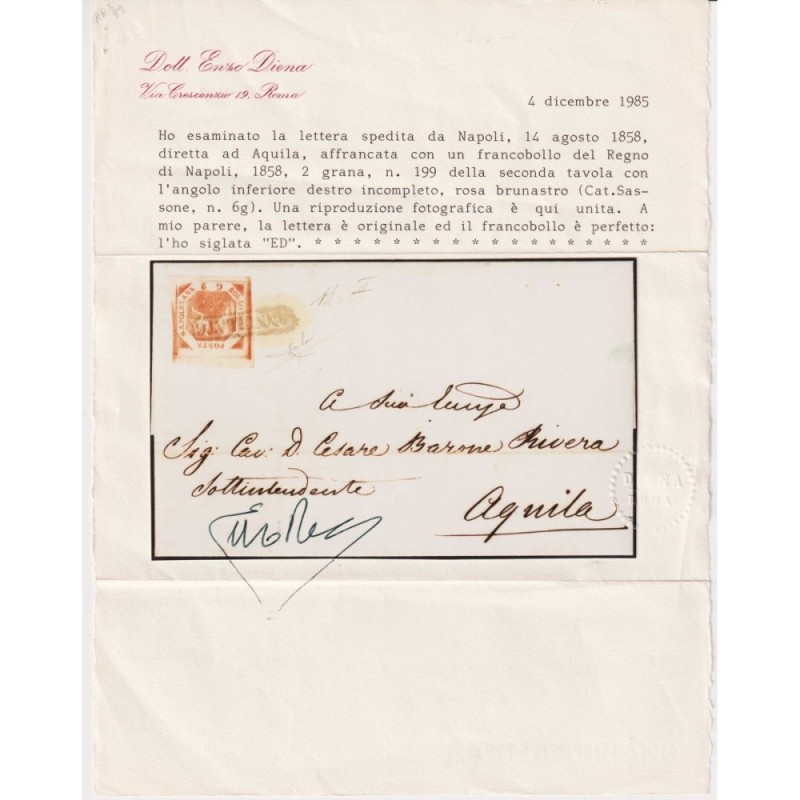 Dott. Enzo Diena
Via Crescenzio 19, Roma
4 dicembre 1985
Ho esaminato la lettera spedita da Napoli, 14 agosto 1858,
diretta ad Aquila, affrancata con un francobollo del Regno
di Napoli, 1858, 2 grana, n. 199 della seconda tavola con
l'angolo inferiore destro incompleto, rosa brunastro (Cat.Sas-
sone, n. 6g). Una riproduzione fotografica è qui unita. A
mio parere, la lettera è originale ed il francobollo è perfetto:
l'ho siglata "ED". * * * * * * * * * * * * * * * * * *
G 2
BOLLO DELLA
POSTA
NAPOLETANA
A Sua
Sig: Cav: D. Cesare Barone Rivera
Sottintendente
Aquila
DIENA
ROMA